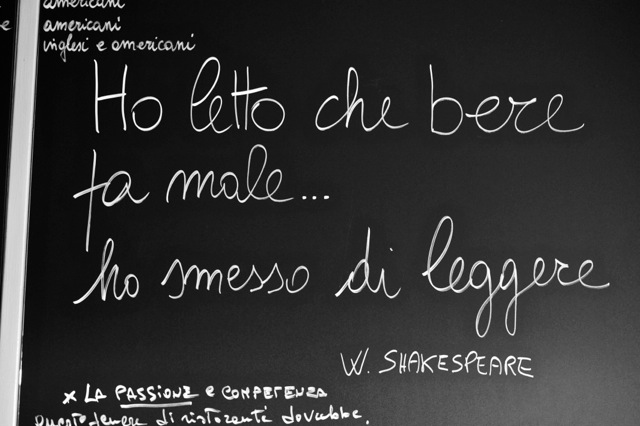 americani
americani
inglesi e americani
Ho letto che bere
fa male...
ho smesso di leggere
W. SHAKESPEARE
x LA PASSIONE e COMPETENZA
di ristoranti dovrebbe,